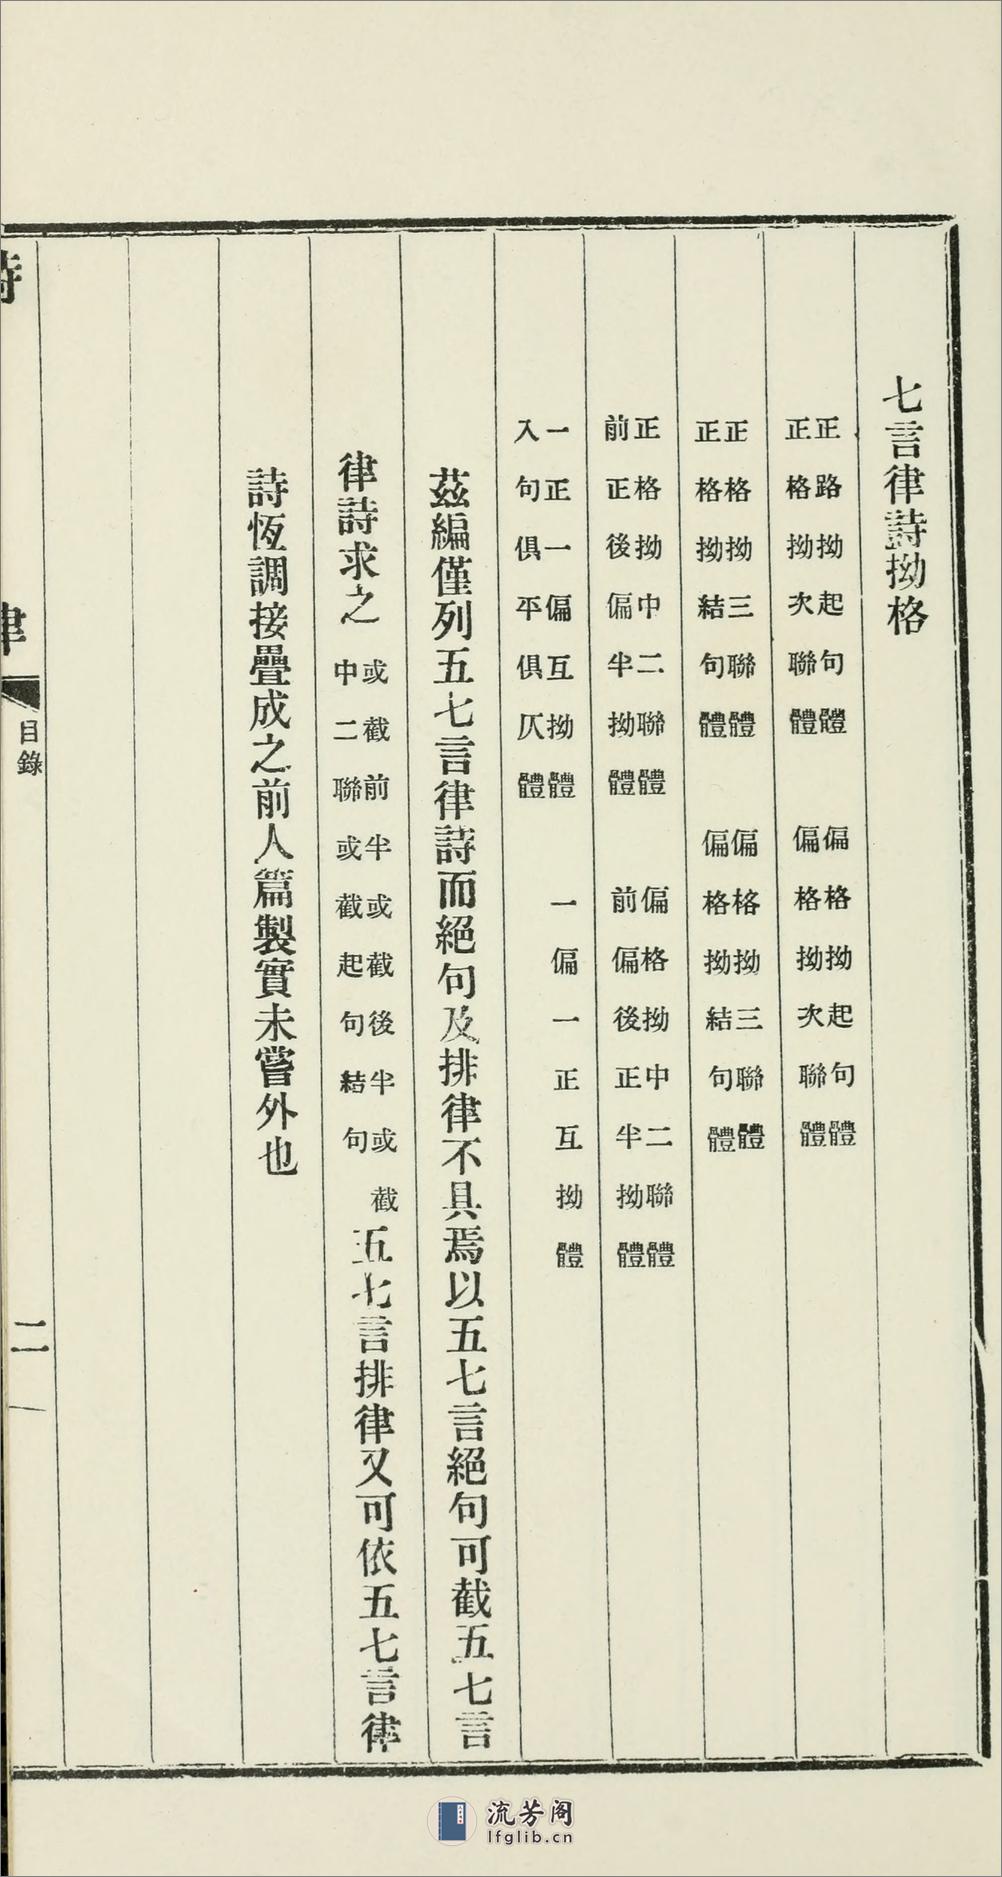 七言律詩拗格
正路拗起句體
正格拗次聯體
偏格拗起句體
偏格拗次聯體
正格拗三聯體
正格拗結句體
偏格拗三聯體
偏格拗結句體
正格拗中二聯體
前正後偏半拗體
偏格拗中二聯體
前偏後正半拗體
一正一偏互拗體
入句俱平俱仄體
一偏一正互拗體
茲編僅列五七言律詩而絕句及排律不具焉以五七言絕句可截五七言
律詩求之
或截前半或截後半或截
中二聯或截起句結句
五七言排律又可依五七言律
詩恆調接疊成之前人篇製實未嘗外也
詩
律
目錄
二
流芳阁
lfglib.cn